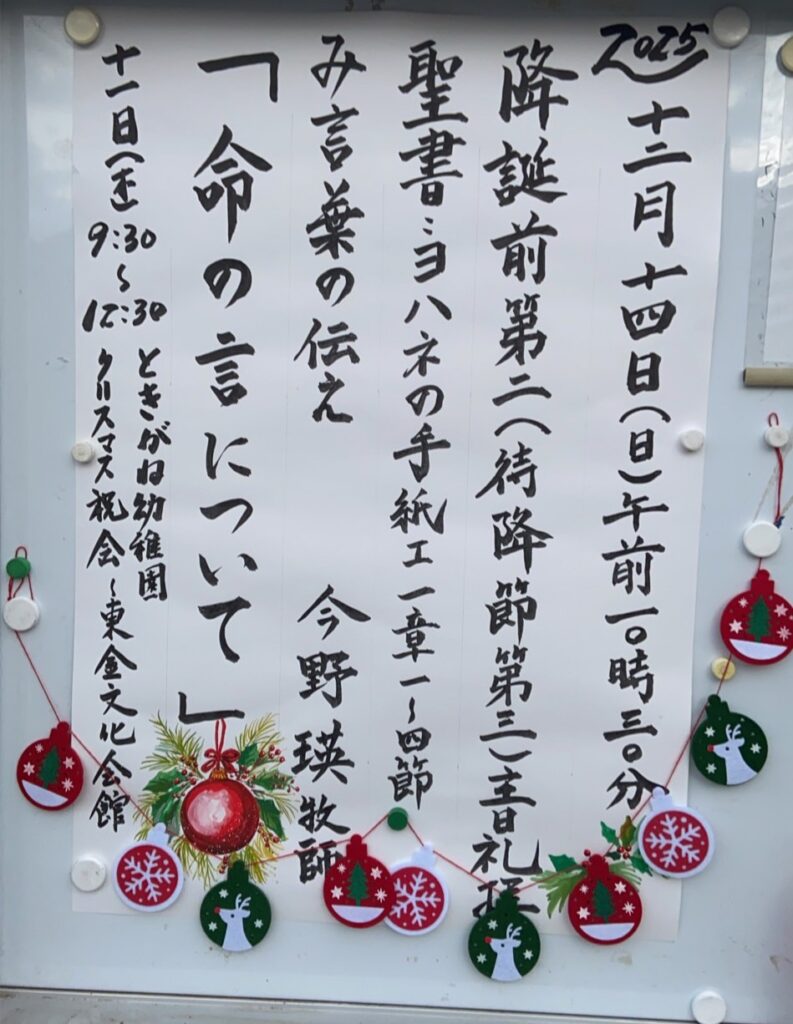 2025 十二月十四日(日)午前一〇時三〇分
降誕前第二(待降節第三)主日礼拝
聖書:ヨハネの手紙Ⅰ一章一~四節
み言葉の伝え 今野瑛牧師
「命の言について」
十一日(木) 9:30~12:30
ときがね幼稚園
クリスマス祝会~東金文化会館